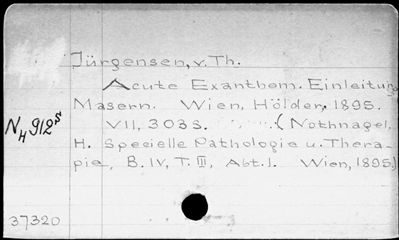 Jürgensen, v. Th.
Acute Exanthem. Einleitung
Masern. Wien, Hölder, 1895.
N H 912 s
VII, 303 S. (Nothnagel,
H. Specielle Pathologie u. Thera-
pie, B. IV, T. III, Abt. 1. Wien, 1895)
37320